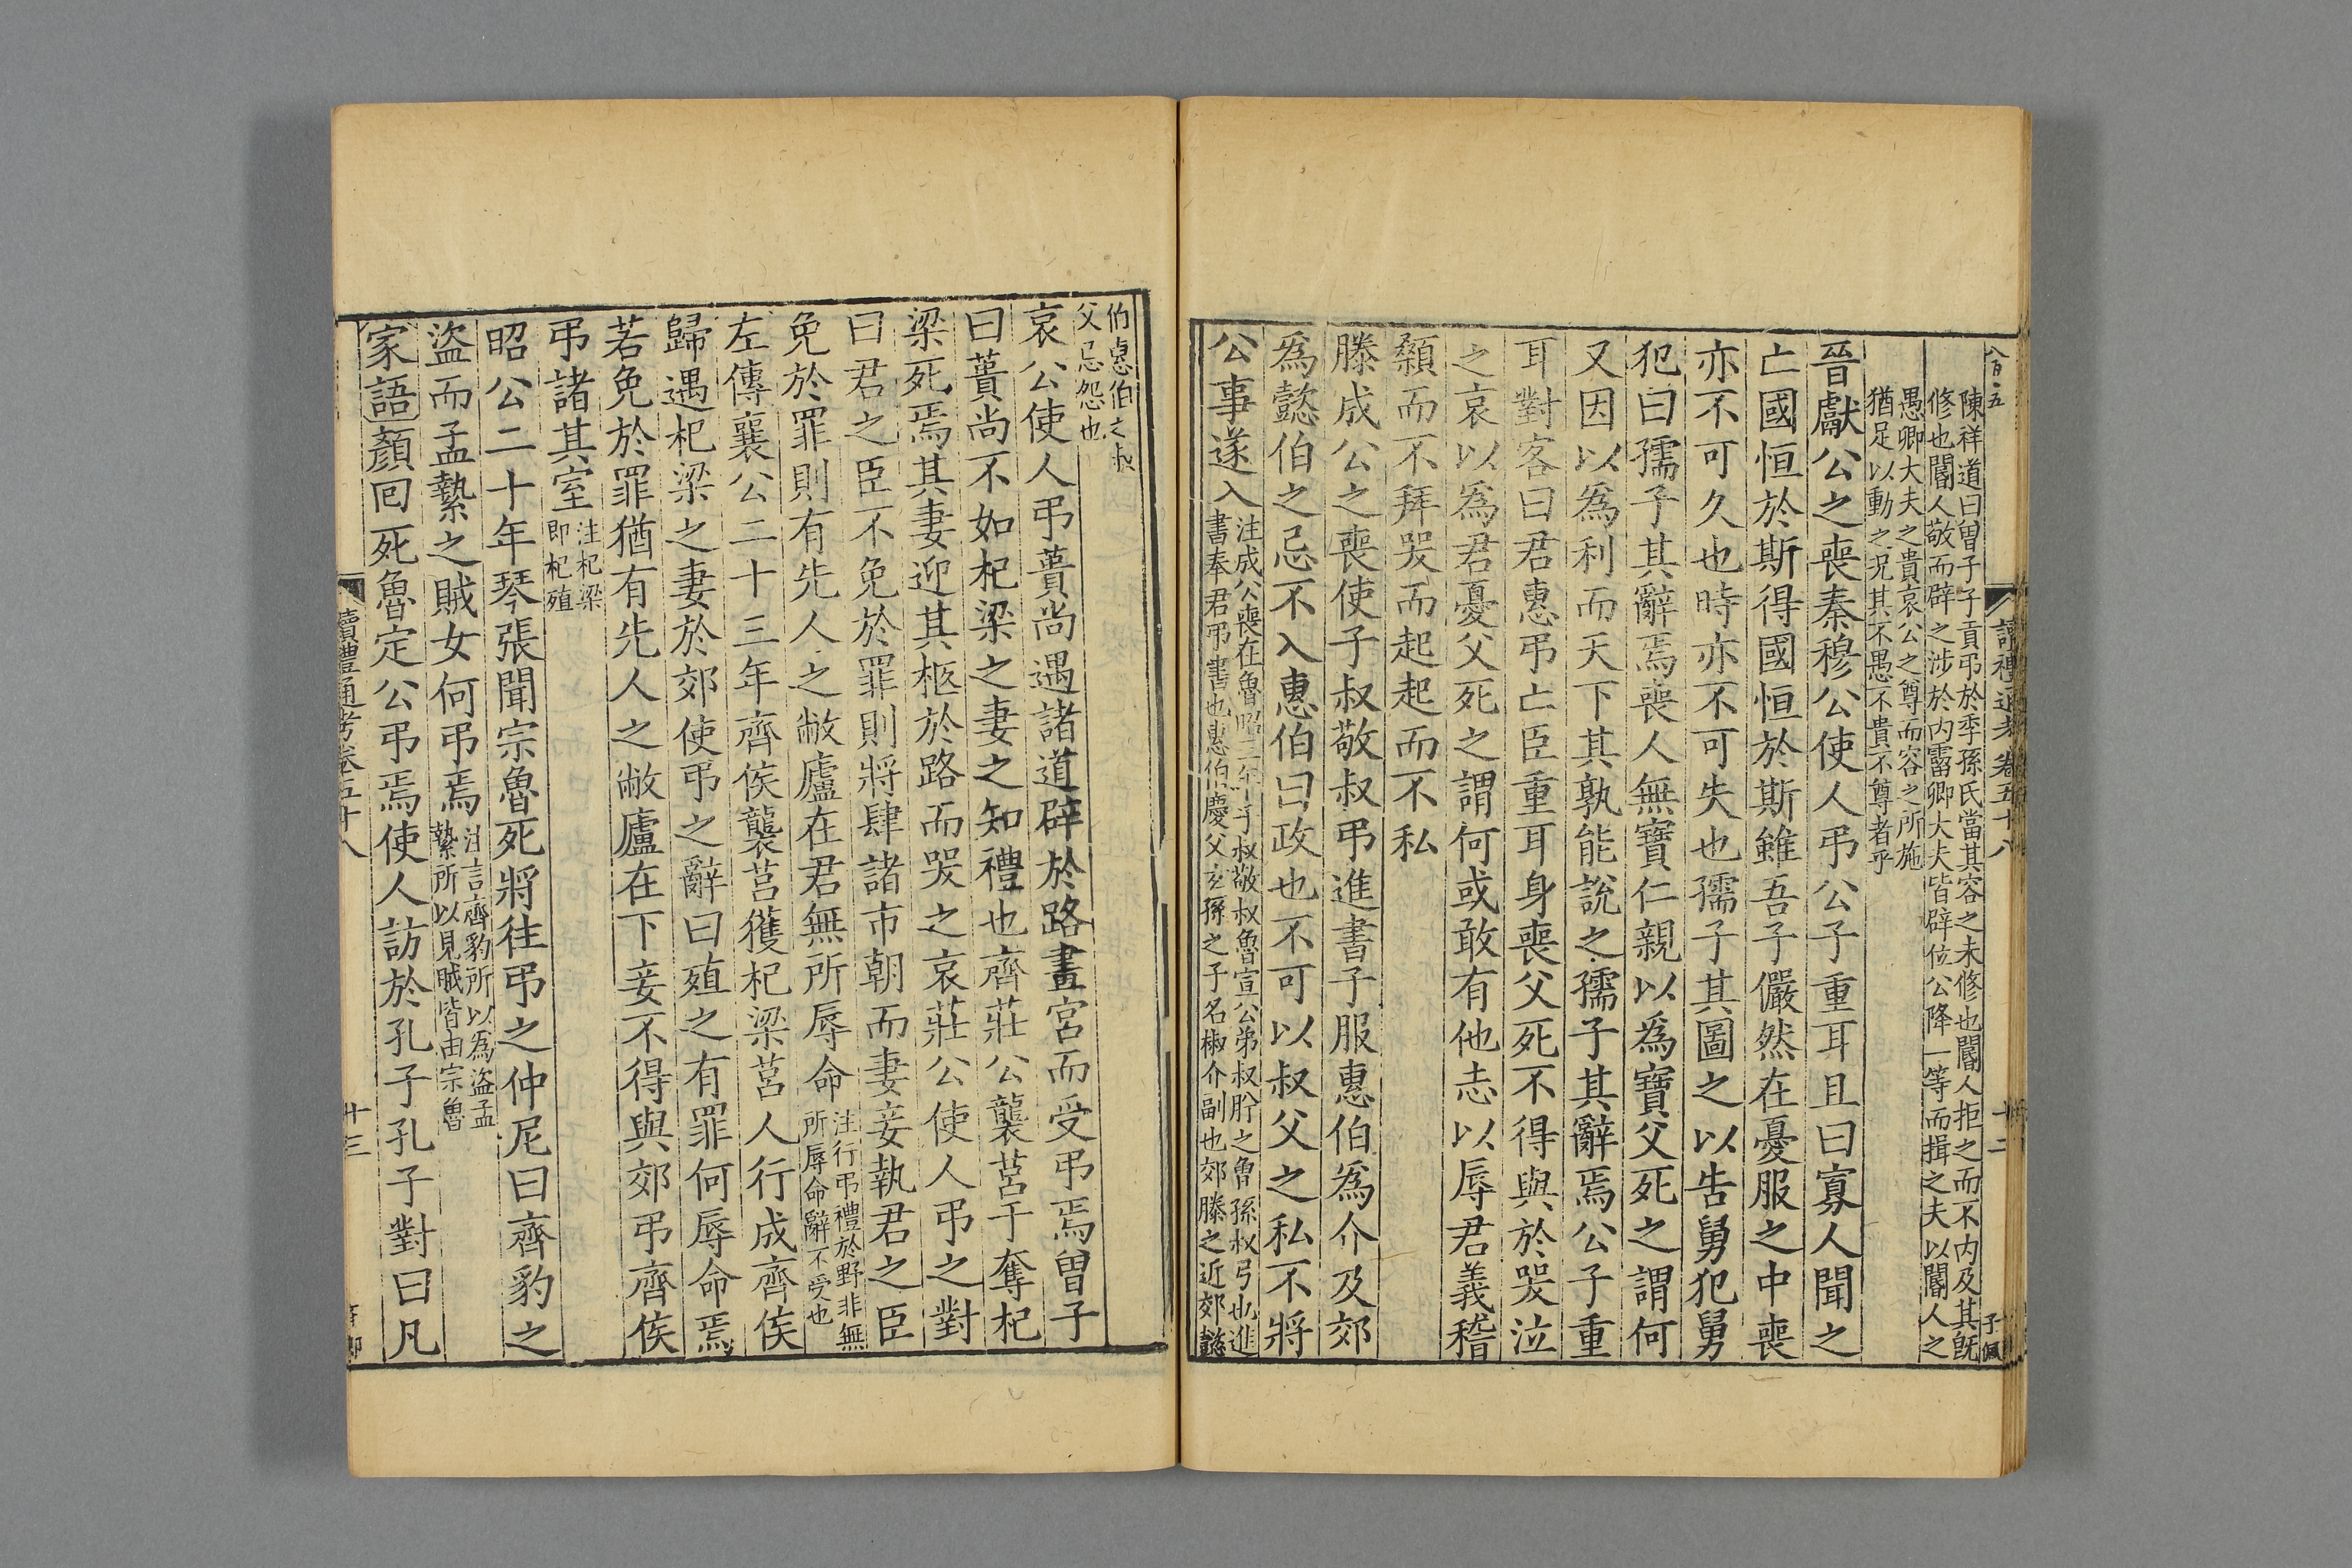 陳祥道曰曾子子貢弔於季孫氏當其容之未修也閽人拒之而不內及其旣
修也閽人敬而辟之涉於內霤卿大夫皆辟位公降一等而揖之夫以閽人之
愚卿大夫之貴哀公之尊而容之所施
猶足以動之况其不愚不貴不尊者乎
晉獻公之喪秦穆公使人弔公子重耳且曰寡人聞之
亡國恒於斯得國恒於斯雖吾子儼然在憂服之中喪
亦不可久也時亦不可失也孺子其圖之以告舅犯舅
犯曰孺子其辭焉喪人無寶仁親以爲寶父死之謂何
又因以爲利而天下其孰能說之孺子其辭焉公子重
耳對客曰君惠弔亡臣重耳身喪父死不得與於哭泣
之哀以爲君憂父死之謂何或敢有他志以辱君義稽
顙而不拜哭而起起而不私
滕成公之喪使子叔敬叔弔進書子服惠伯爲介及郊
爲懿伯之忌不入惠伯曰政也不可以叔父之私不將
公事遂入
注成公喪在魯昭三年子叔敬叔魯宣公弟叔肸之曾孫叔弓也進
書奉君弔書也惠伯慶父玄孫之子名椒介副也郊滕之近郊懿
讀禮通考卷五十八
十二
子佩
伯惠伯之叔
父忌怨也
哀公使人弔蕢尚遇諸道辟於路畫宮而受弔焉曾子
曰蕢尚不如杞梁之妻之知禮也齊莊公襲莒于奪杞
梁死焉其妻迎其柩於路而哭之哀莊公使人弔之對
曰君之臣不免於罪則將肆諸市朝而妻妾執君之臣
免於罪則有先人之敝廬在君無所辱命
注行弔禮於野非無
所辱命辭不受也
左傳襄公二十三年齊侯襲莒獲杞梁莒人行成齊侯
歸遇杞梁之妻於郊使弔之辭曰殖之有罪何辱命焉
若免於罪猶有先人之敝廬在下妾不得與郊弔齊侯
弔諸其室
注杞梁
即杞殖
昭公二十年琴張聞宗魯死將往弔之仲尼曰齊豹之
盜而孟縶之賊女何弔焉
注言齊豹所以為盜孟
縶所以見賊皆由宗魯
家語顏囘死魯定公弔焉使人訪於孔子孔子對曰凡
讀禮通考卷五十八
十三